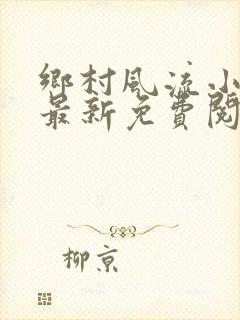 鄉村風流小
最新免費閱
柳京